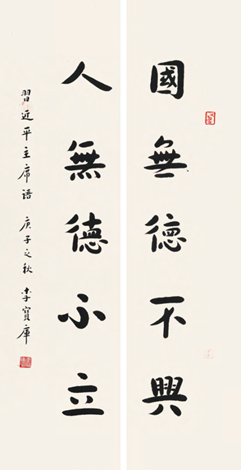 國無德不興
人無德不立
習近平主席語 庚子之秋 李寶庫